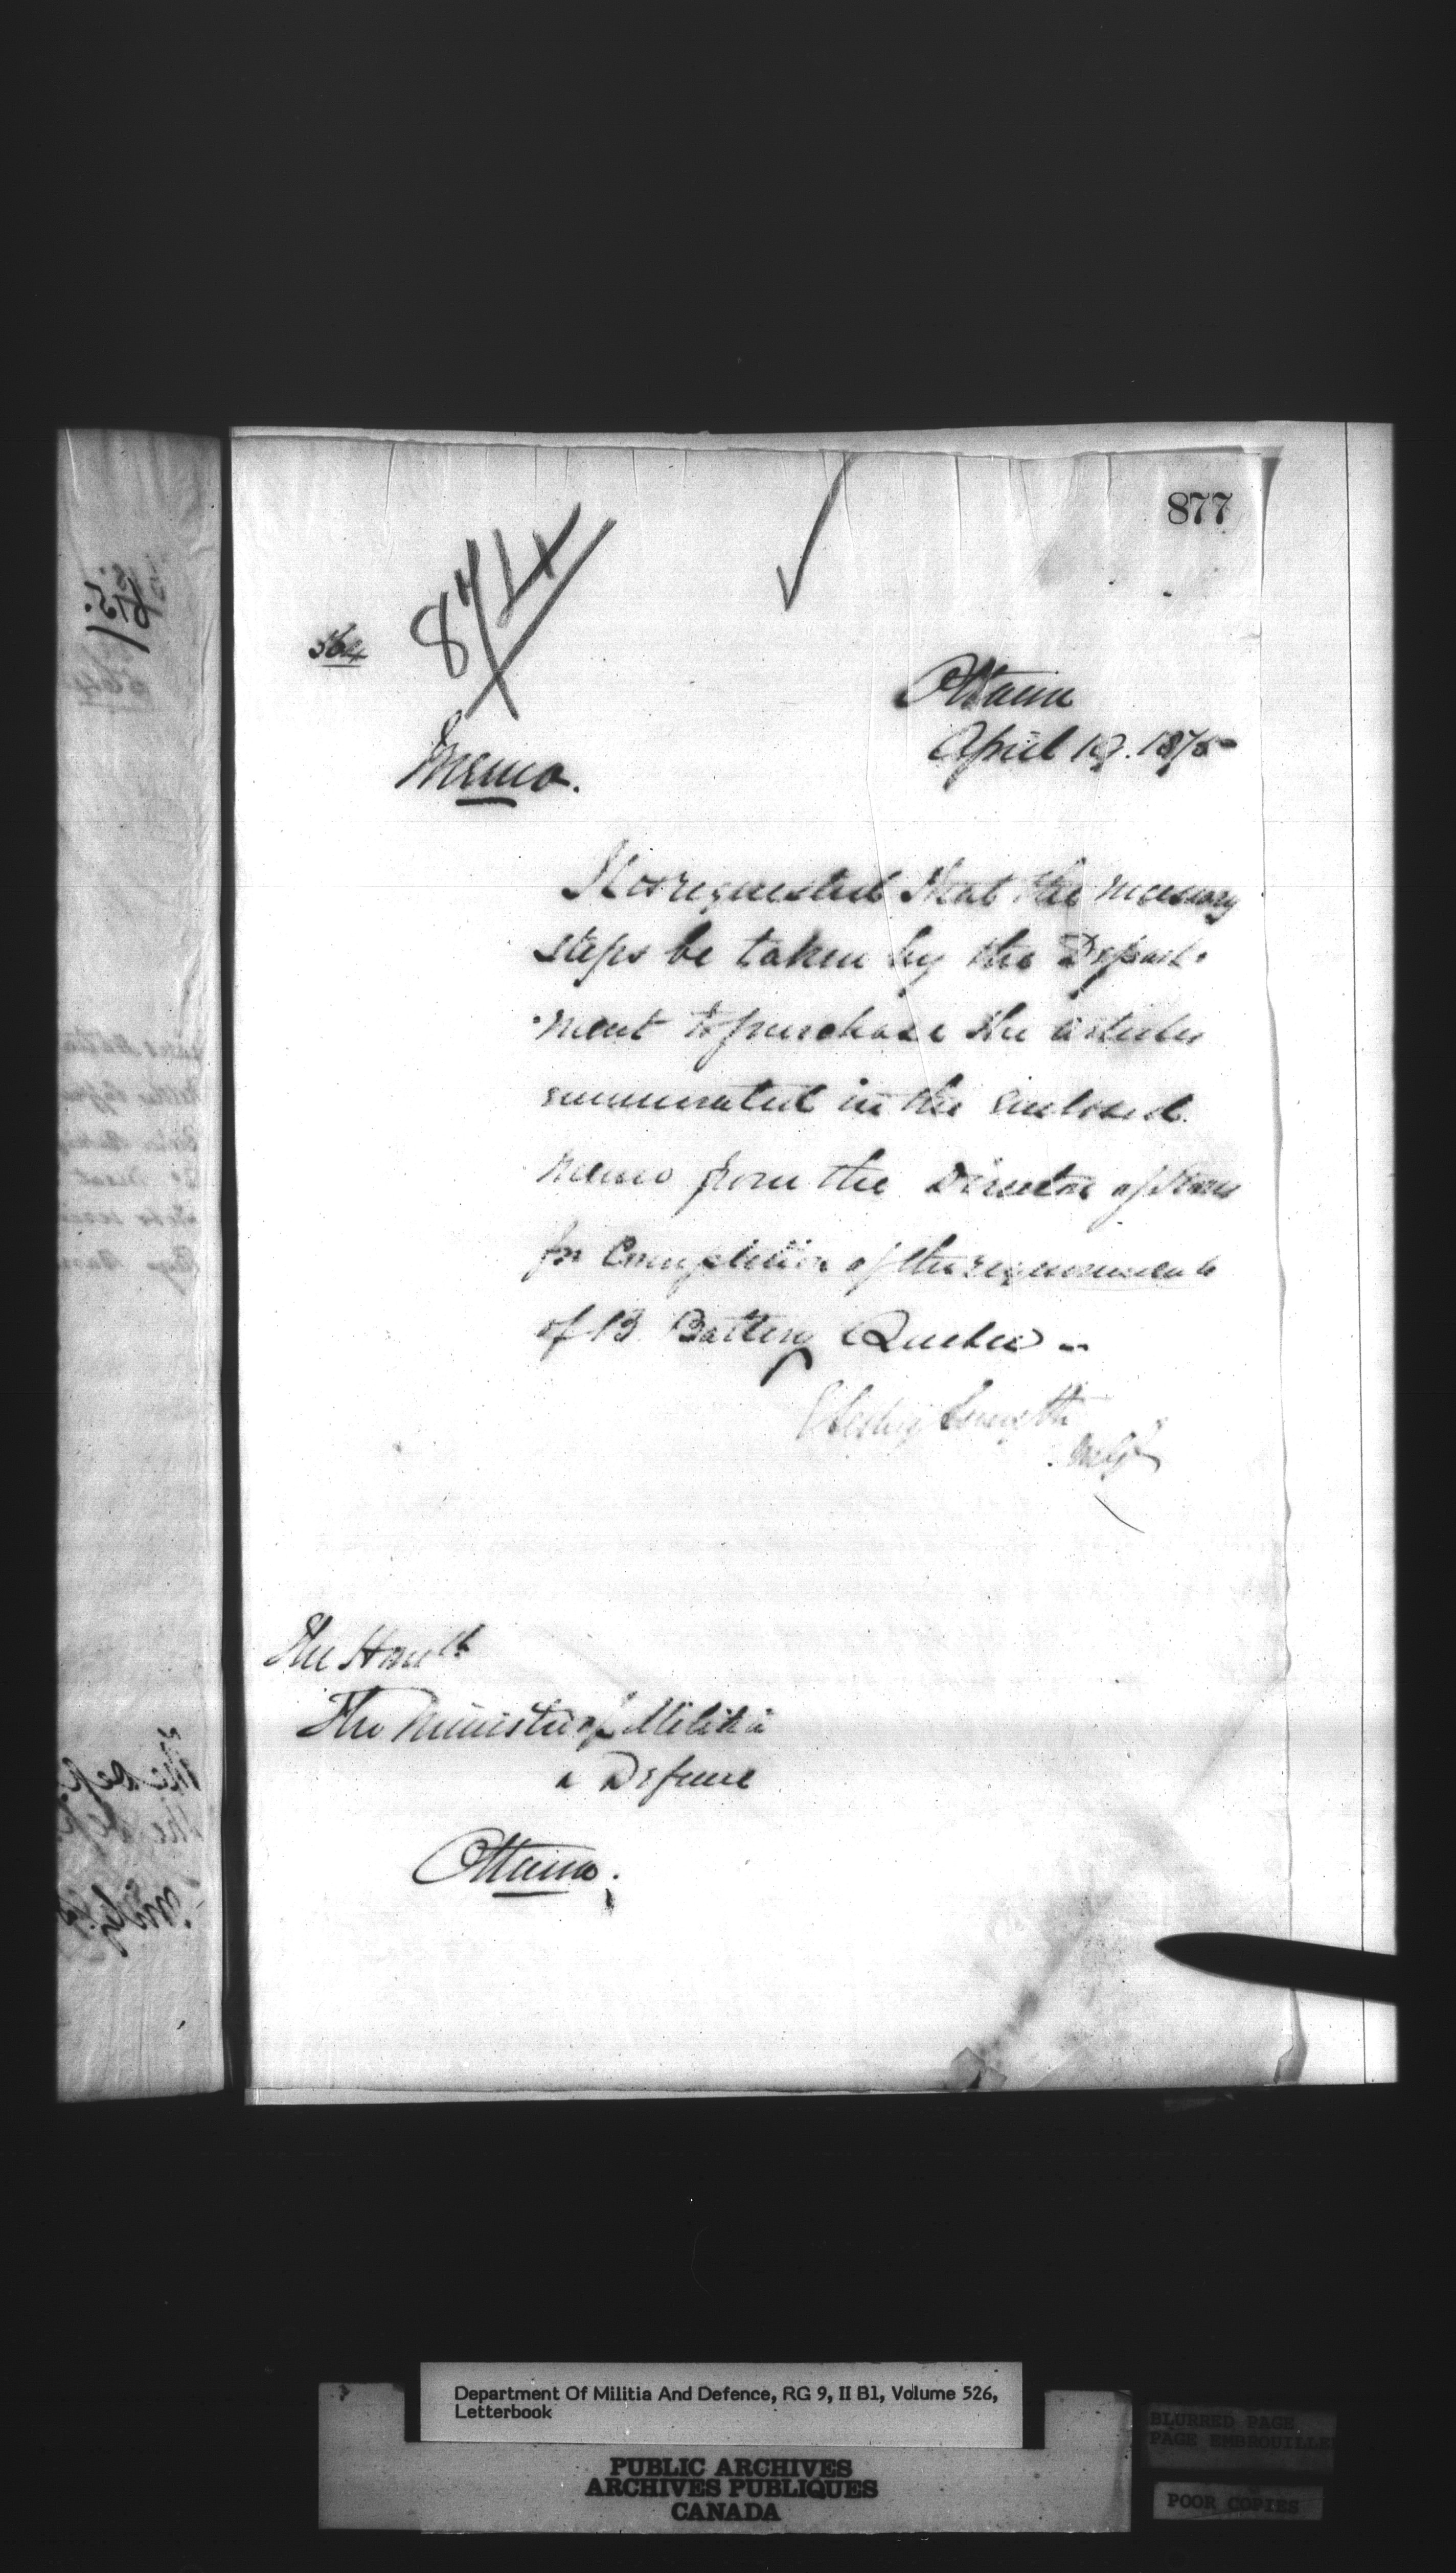 877
564
Ottawa
April 19. 1875
Memo.
It is requested that the necessary
steps be taken by the Depart-
-ment to purchase the articles
enumerated in the enclosed
memo from the Director of Stores
for Completion of the requirements
of B. Battery Quebec -
Selby Smyth
M.G.
The Honble
The Minister of Militia
& Defence
Ottawa.
Department Of Militia And Defence, RG 9, II B1, Volume 526,
Letterbook
PUBLIC ARCHIVES
ARCHIVES PUBLIQUES
CANADA
BLURRED PAGE
PAGE EMBROUILLE
POOR COPIES